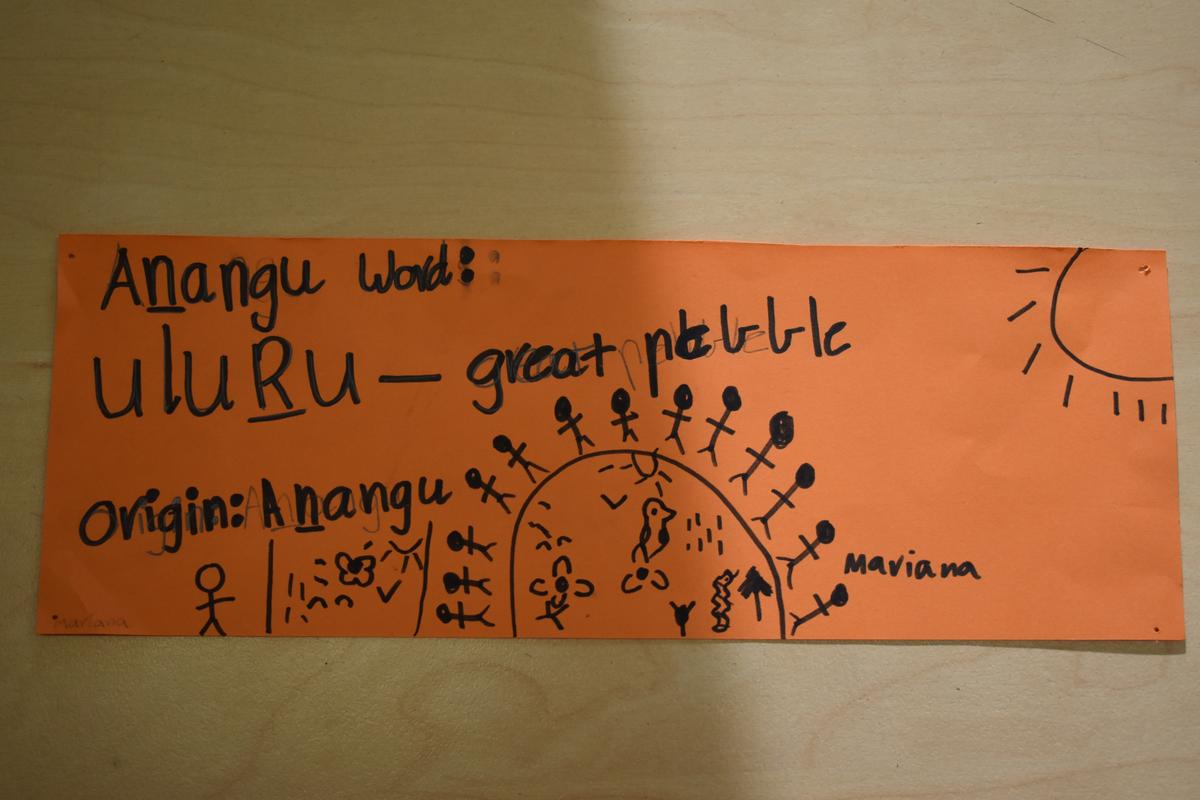 Anangu word:
uluRu — great pebble
Origin: Anangu
Mariana
Mariana